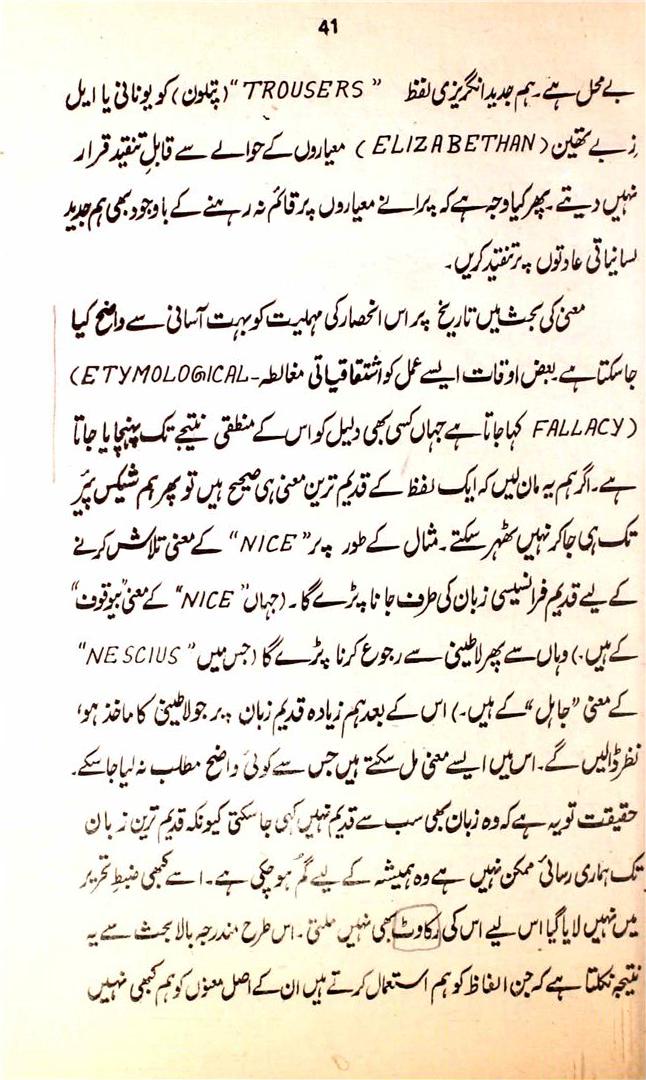 41
بے محل ہے۔ ہم جدید انگریزی لفظ "TROUSERS" (پتلون) کو یونانی یا ایل
زبے تھین (ELIZABETHAN) معیاروں کے حوالے سے قابلِ تنقید قرار
نہیں دیتے۔ پھر کیا وجہ ہے کہ پرانے معیاروں پر قائم نہ رہنے کے باوجود بھی ہم جدید
لسانیاتی عادتوں پر تنقید کریں۔
معنی کی بحث میں تاریخ پر اس انحصار کی مہملیت کو بہت آسانی سے واضح کیا
جا سکتا ہے۔ بعض اوقات ایسے عمل کو اشتقاقیاتی مغالطہ (ETYMOLOGICAL-
FALLACY) کہا جاتا ہے جہاں کسی بھی دلیل کو اس کے منطقی نتیجے تک پہنچایا جاتا
ہے۔ اگر ہم یہ مان لیں کہ ایک لفظ کے قدیم ترین معنی ہی صحیح ہیں تو پھر ہم شیکس پیئر
تک ہی جا کر نہیں ٹھہر سکتے۔ مثال کے طور پر "NICE" کے معنی تلاش کرنے
کے لیے قدیم فرانسیسی زبان کی طرف جانا پڑے گا۔ (جہاں "NICE" کے معنی "بیوقوف"
کے ہیں۔) وہاں سے پھر لاطینی سے رجوع کرنا پڑے گا (جس میں "NESCIUS"
کے معنی "جاہل" کے ہیں۔) اس کے بعد ہم زیادہ قدیم زبان پر جو لاطینی کا ماخذ ہو،
نظر ڈالیں گے۔ اس میں ایسے معنی مل سکتے ہیں جس سے کوئی واضح مطلب نہ لیا جا سکے۔
حقیقت تو یہ ہے کہ وہ زبان بھی سب سے قدیم نہیں کہی جا سکتی کیونکہ قدیم ترین زبان
تک ہماری رسائی ممکن نہیں ہے وہ ہمیشہ کے لیے گم ہو چکی ہے۔ اسے کبھی ضبطِ تحریر
میں نہیں لایا گیا اس لیے اس کی رکاوٹ بھی نہیں ملتی۔ اس طرح مندرجہ بالا بحث سے یہ
نتیجہ نکلتا ہے کہ جن الفاظ کو ہم استعمال کرتے ہیں ان کے اصل معنوں کو ہم کبھی نہیں